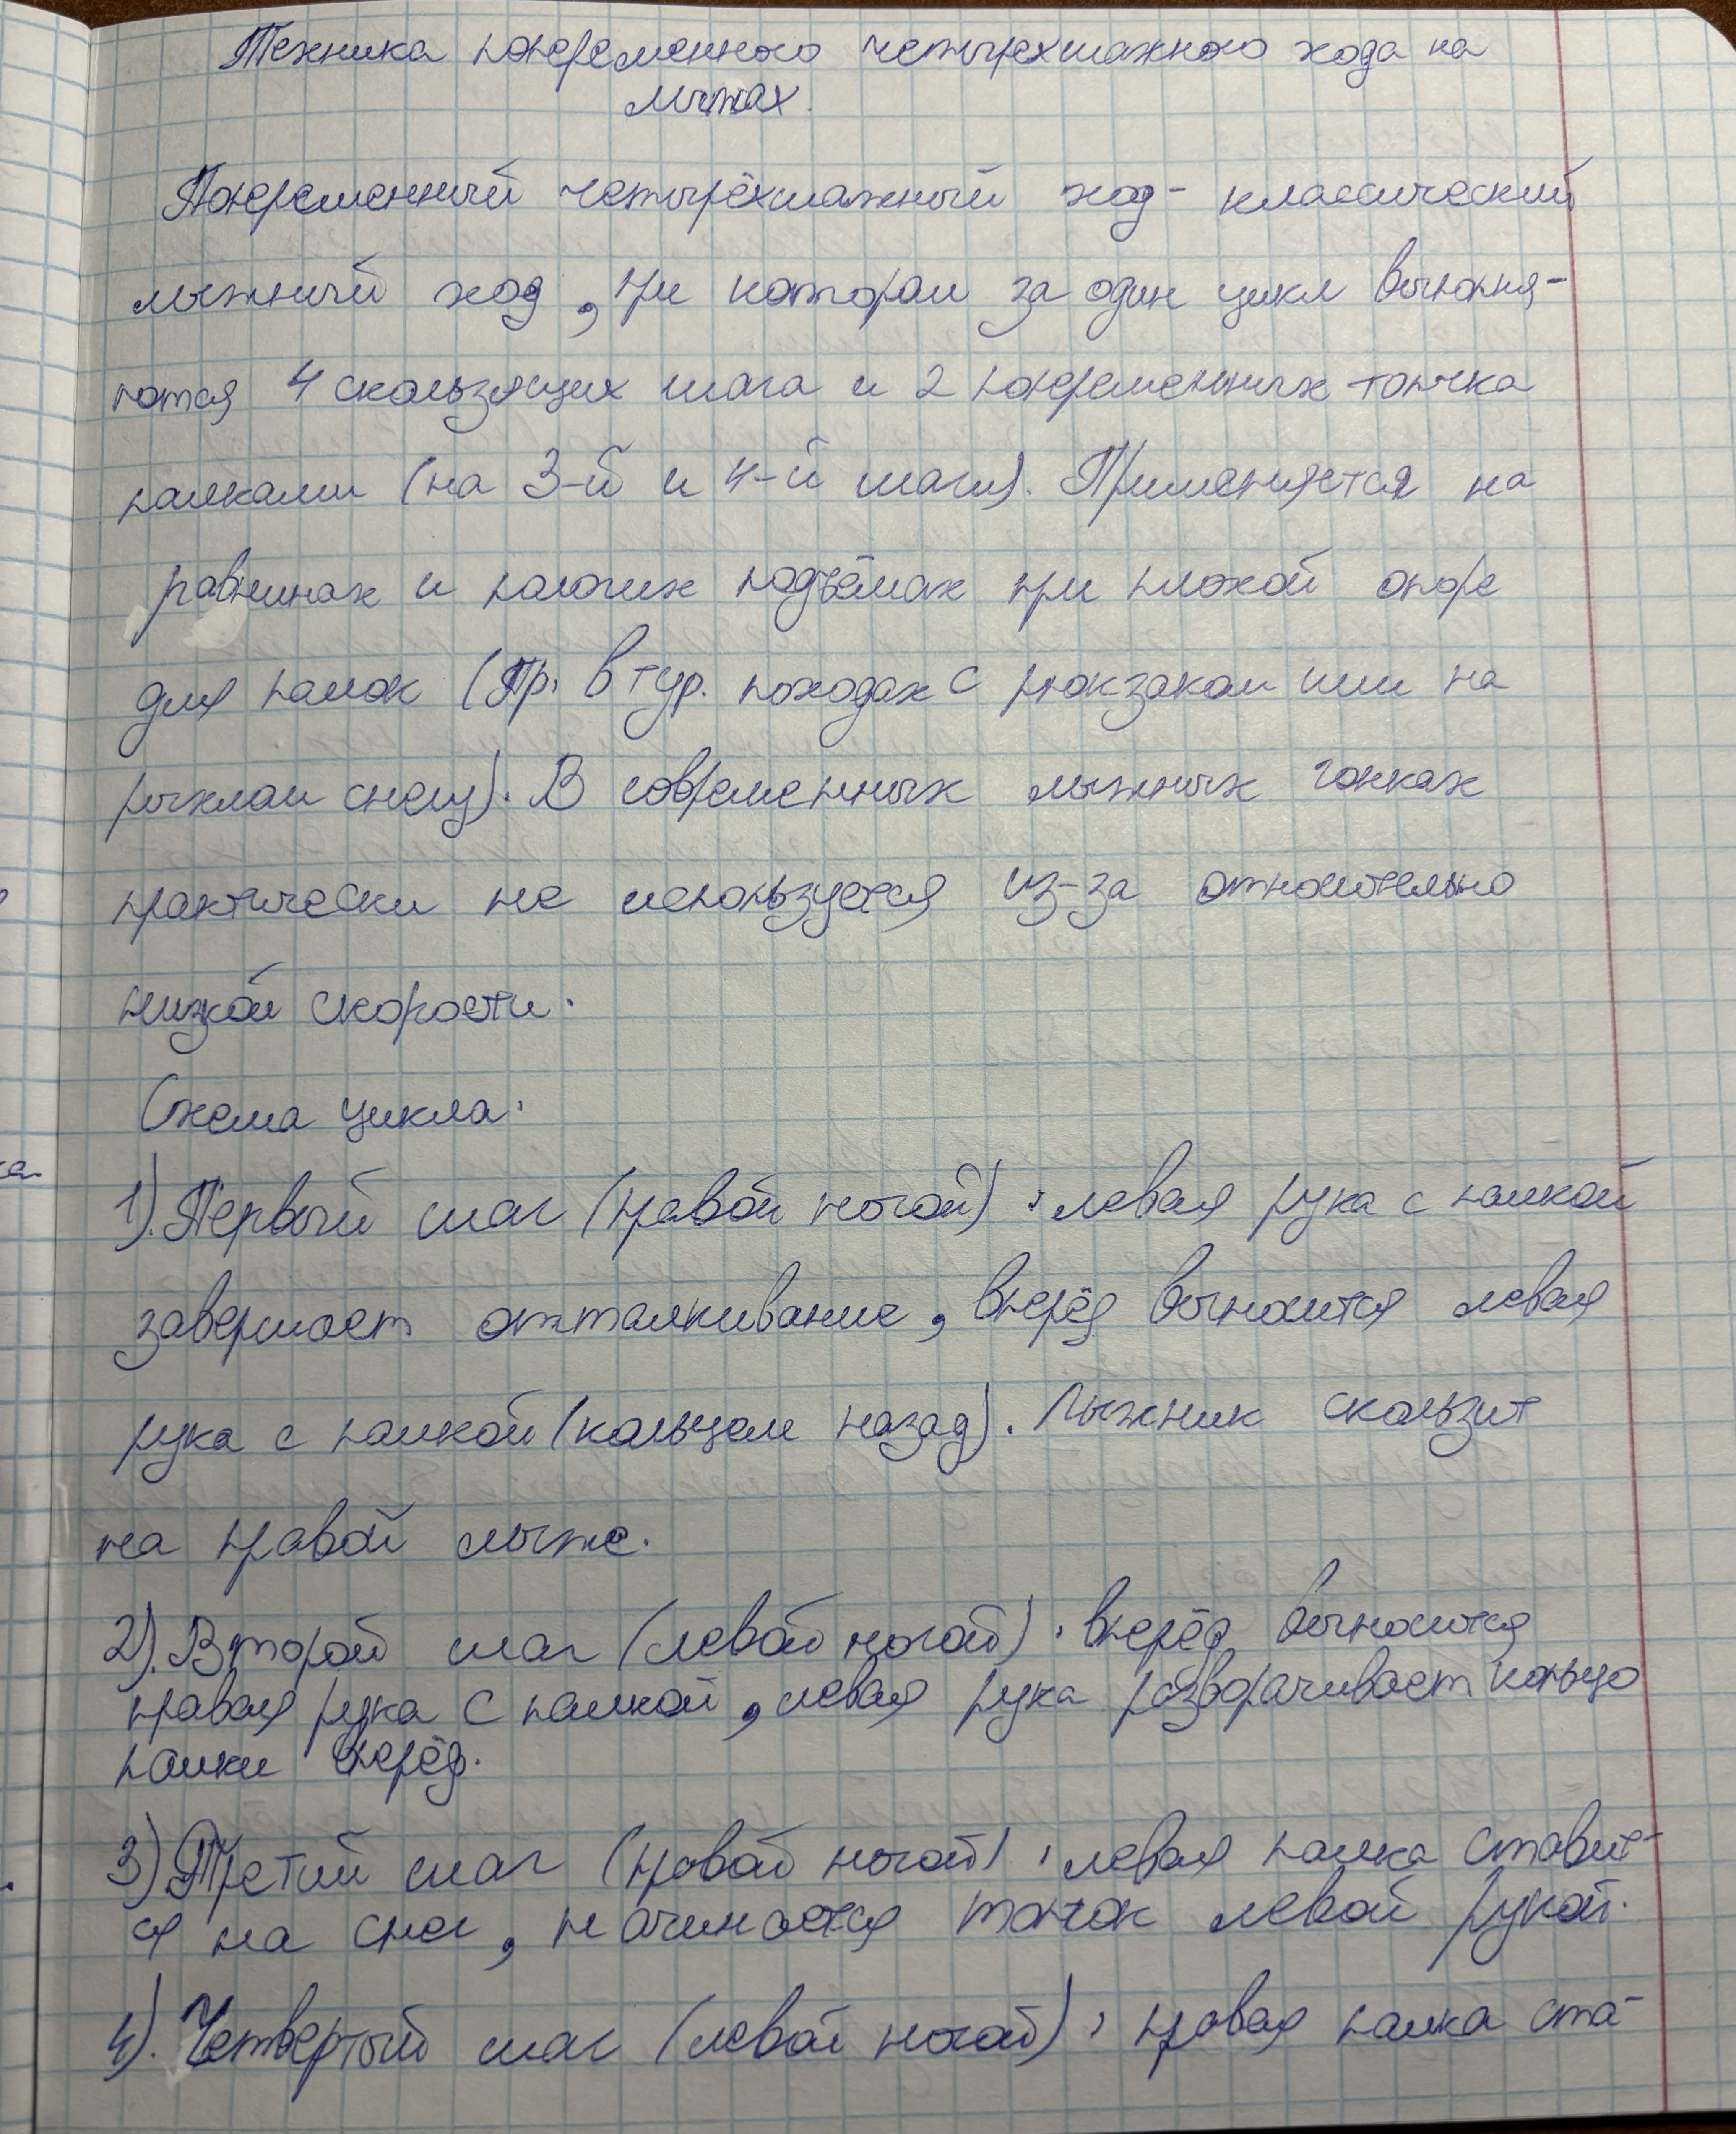 Техника попеременного четырехшажного хода на
лыжах.
Попеременный четырёхшажный ход - классический
лыжный ход, при котором за один цикл выполня-
ются 4 скользящих шага и 2 попеременных толчка
палками (на 3-й и 4-й шаги). Применяется на
равнинах и пологих подъёмах при плохой опоре
для палок (Пр. в тур. походах с рюкзаком или на
рыхлом снегу). В современных лыжных гонках
практически не используется из-за относительно
низкой скорости.
Схема цикла:
1). Первый шаг (правой ногой): левая рука с палкой
завершает отталкивание, вперёд выносится левая
рука с палкой (кольцом назад). Лыжник скользит
на правой лыже.
2). Второй шаг (левой ногой): вперёд выносится
правая рука с палкой, левая рука разворачивает кольцо
палки вперёд.
3) Третий шаг (правой ногой): левая палка ставит-
ся на снег, начинается толчок левой рукой.
4). Четвертый шаг (левой ногой): правая палка ста-